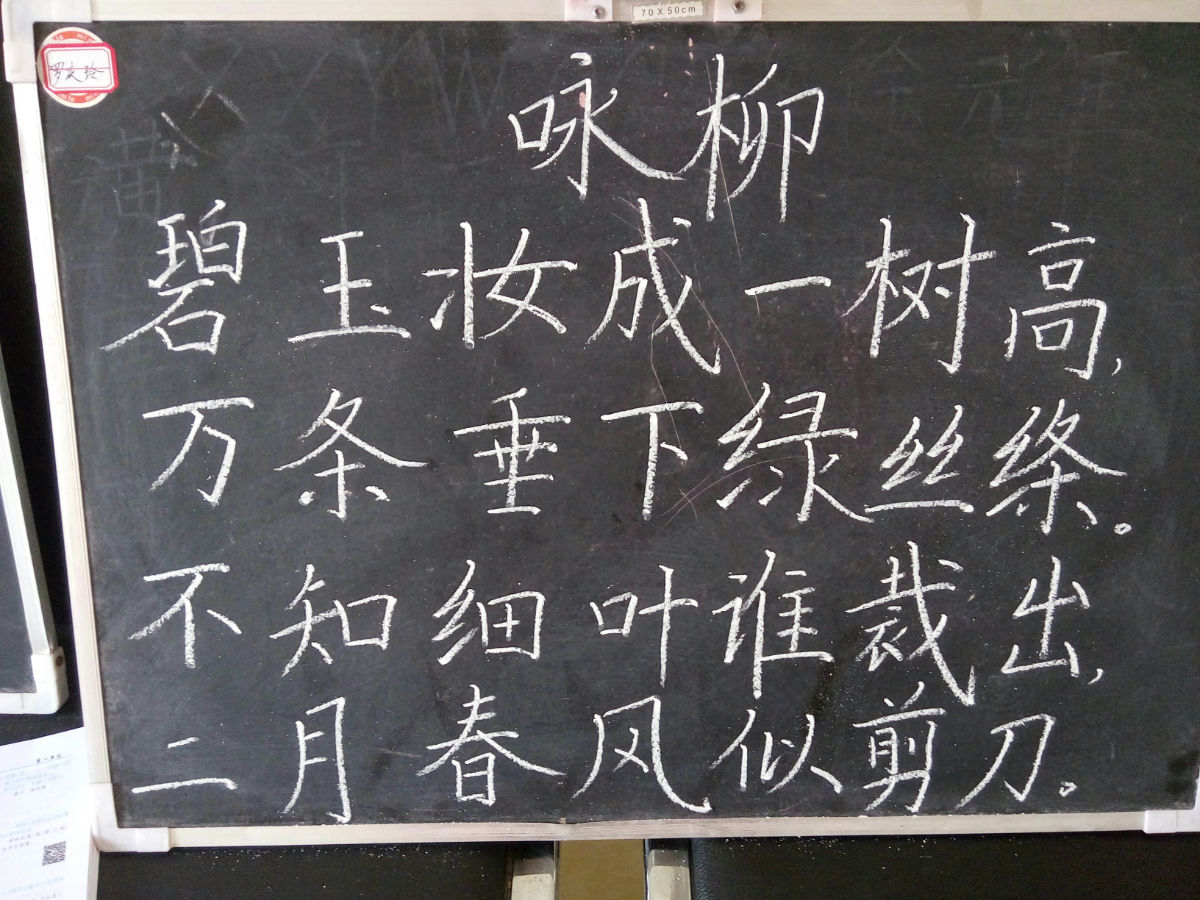 70X50cm
咏柳
碧玉妆成一树高,
万条垂下绿丝绦。
不知细叶谁裁出,
二月春风似剪刀。